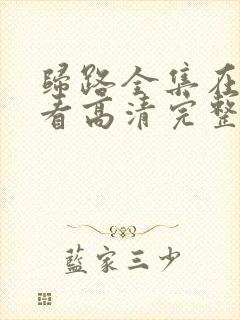 歸路全集在
看高清完整
藍家三少